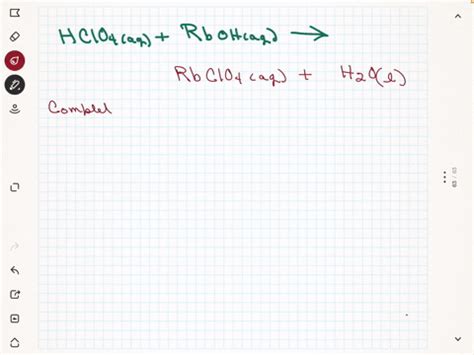 HClO4(aq) + RbOH(aq) →
RbClO4(aq) + H2O(l)
Complet